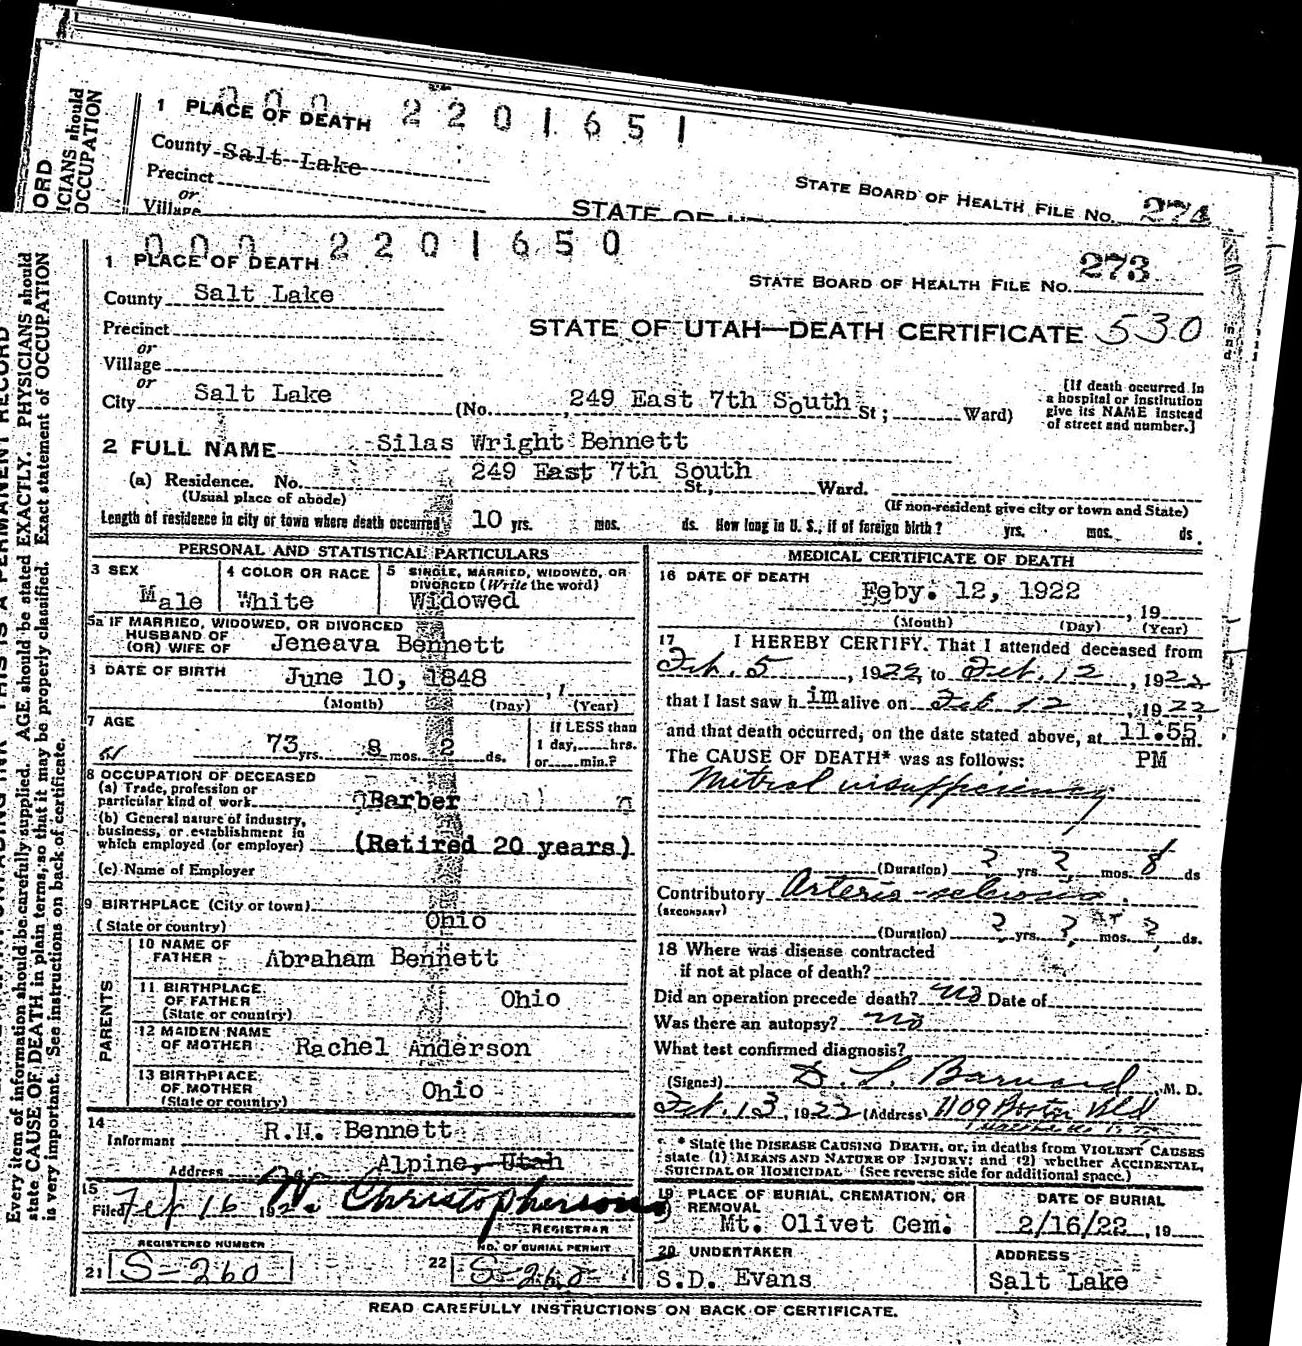 1 PLACE OF DEATH
0 0 0 2 2 0 1 6 5 1
County Salt Lake
Precinct
or
Village
STATE BOARD OF HEALTH FILE NO. 274
STATE OF
ORD
ICIANS should
OCCUPATION
0 0 0 2 2 0 1 6 5 0
1 PLACE OF DEATH
STATE BOARD OF HEALTH FILE NO. 273
County Salt Lake
STATE OF UTAH—DEATH CERTIFICATE 530
Precinct
or
Village
or
City Salt Lake (No. 249 East 7th South St; Ward)
[If death occurred in
a hospital or institution
give its NAME instead
of street and number.]
2 FULL NAME Silas Wright Bennett
(a) Residence. No. 249 East 7th South St., Ward.
(Usual place of abode) (If non-resident give city or town and State)
Length of residence in city or town where death occurred 10 yrs. mos. ds. How long in U. S., if of foreign birth? yrs. mos. ds.
PERSONAL AND STATISTICAL PARTICULARS
3 SEX
Male
4 COLOR OR RACE
White
5 SINGLE, MARRIED, WIDOWED, OR
DIVORCED (Write the word)
Widowed
5a IF MARRIED, WIDOWED, OR DIVORCED
HUSBAND OF
(OR) WIFE OF Jeneava Bennett
DATE OF BIRTH June 10, 1848
(Month) (Day) (Year)
7 AGE
73 yrs. 8 mos. 2 ds.
If LESS than
1 day, hrs.
or min.?
8 OCCUPATION OF DECEASED
(a) Trade, profession or
particular kind of work Barber
(b) General nature of industry,
business, or establishment in
which employed (or employer) (Retired 20 years)
(c) Name of Employer
9 BIRTHPLACE (City or town)
(State or country) Ohio
PARENTS
10 NAME OF
FATHER Abraham Bennett
11 BIRTHPLACE
OF FATHER Ohio
(State or country)
12 MAIDEN NAME
OF MOTHER Rachel Anderson
13 BIRTHPLACE
OF MOTHER Ohio
(State or country)
14
Informant R.H. Bennett
Address Alpine, Utah
15
Filed Feb 16 192 W. Christopherson
REGISTRAR
REGISTERED NUMBER
21 S-260
NO. OF BURIAL PERMIT
22 S-260
MEDICAL CERTIFICATE OF DEATH
16 DATE OF DEATH
Feby. 12, 1922 , 19
(Month) (Day) (Year)
17 I HEREBY CERTIFY, That I attended deceased from
Feb. 5, 1922, to Feb. 12, 1922
that I last saw h im alive on Feb 12, 1922,
and that death occurred, on the date stated above, at 11:55 m.
The CAUSE OF DEATH* was as follows: PM
Mitral insufficiency
(Duration) 2 yrs. 2 mos. 8 ds
Contributory Arterio-sclerosis.
(SECONDARY)
(Duration) ? yrs. ? mos. ? ds.
18 Where was disease contracted
if not at place of death?
Did an operation precede death? no Date of
Was there an autopsy? no
What test confirmed diagnosis?
(Signed) D. L. Barnard, M. D.
Feb. 13, 1922 (Address) 1109 Boston Bld
* State the DISEASE CAUSING DEATH, or, in deaths from VIOLENT CAUSES
state (1) MEANS AND NATURE OF INJURY; and (2) whether ACCIDENTAL,
SUICIDAL OR HOMICIDAL (See reverse side for additional space.)
19 PLACE OF BURIAL, CREMATION, OR
REMOVAL
Mt. Olivet Cem.
DATE OF BURIAL
2/16/22, 19
20 UNDERTAKER
S.D. Evans
ADDRESS
Salt Lake
READ CAREFULLY INSTRUCTIONS ON BACK OF CERTIFICATE.
THIS IS A PERMANENT RECORD
Every item of information should be carefully supplied. AGE should be stated EXACTLY. PHYSICIANS should
state CAUSE OF DEATH in plain terms, so that it may be properly classified. Exact statement of OCCUPATION
is very important. See instructions on back of certificate.